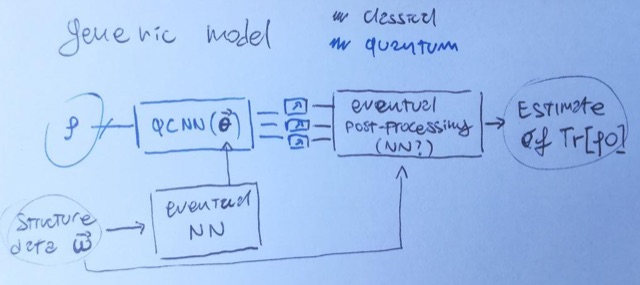 generic model
classical
quantum
ρ
QCNN(θ⃗)
eventual
Post-Processing
(NN?)
Estimate
of Tr[ρO]
Structure
data ω⃗
eventual
NN